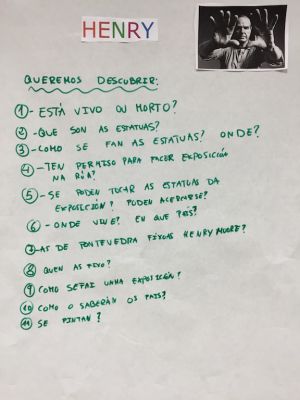 HENRY
QUEREMOS DESCUBRIR:
1- ESTÁ VIVO OU MORTO?
2- QUE SON AS ESTATUAS?
3- COMO SE FAN AS ESTATUAS? ONDE?
4- TEN PERMISO PARA FACER EXPOSICIÓN
NA RÚA?
5- SE PODEN TOCAR AS ESTATUAS DA
EXPOSICIÓN? PODEN ACERCARSE?
6- ONDE VIVE? EN QUE PAÍS?
7- AS DE PONTEVEDRA FÍXOAS HENRY MOORE?
8 QUEN AS FIXO?
9 COMO SE FAI UNHA EXPOSICIÓN?
10 COMO O SABERÁN OS PAIS?
11 SE PINTAN?